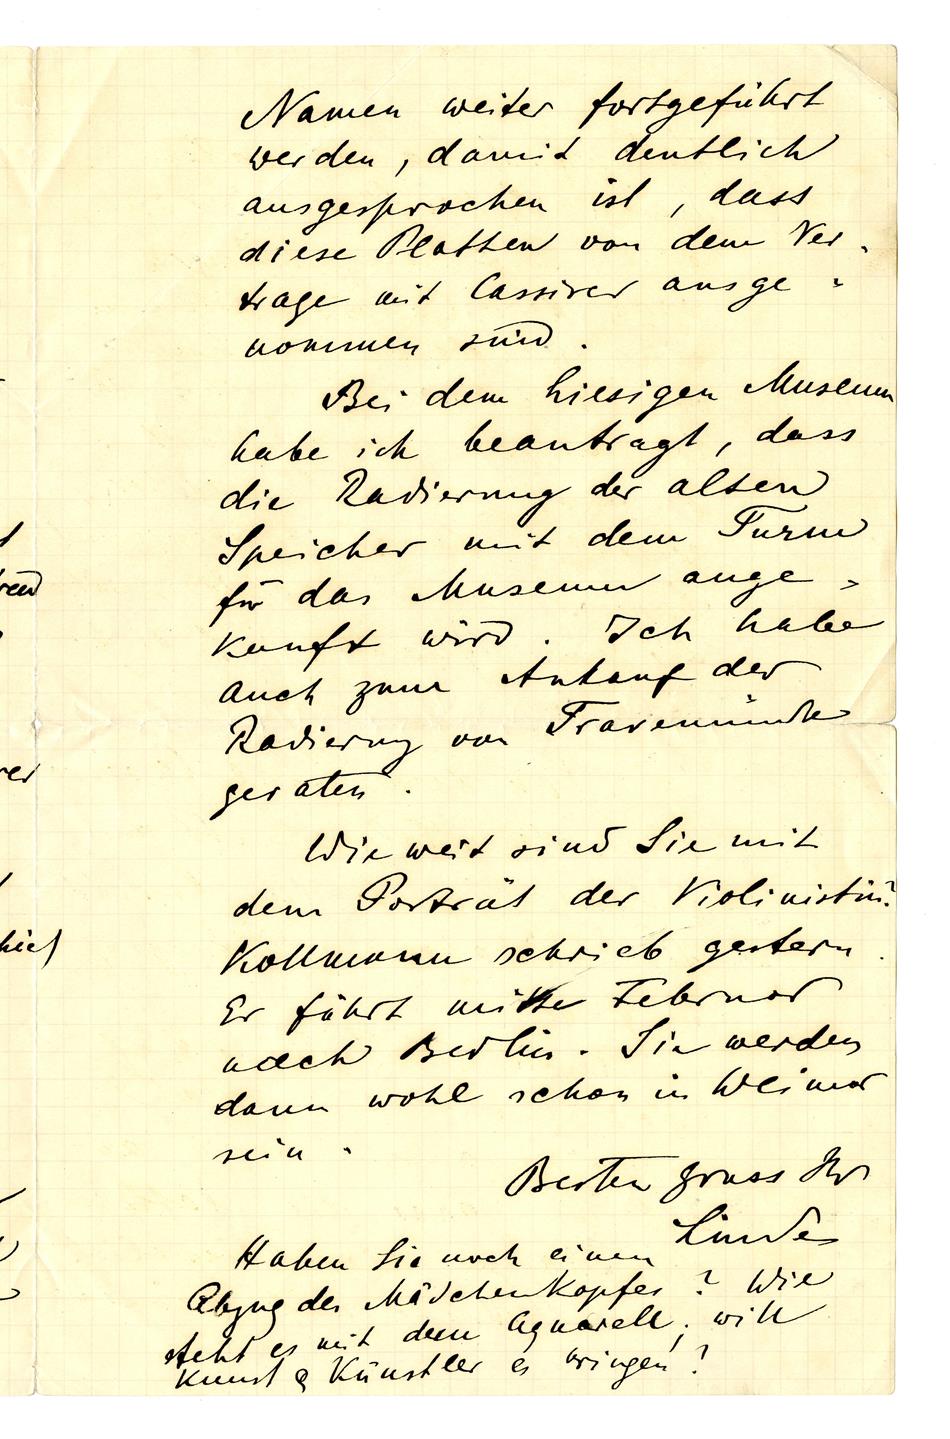 Namen weiter fortgeführt
werden, damit deutlich
ausgesprochen ist, dass
diese Platten von dem Ver-
trage mit Cassirer ausge-
nommen sind.
Bei dem hiesigen Museum
habe ich beantragt, dass
die Radierung der alten
Speicher mit dem Turm
für das Museum ange-
kauft wird. Ich habe
auch zum Ankauf der
Radierung von Travemünde
geraten.
Wie weit sind Sie mit
dem Porträt der Violinistin?
Kollmann schrieb gestern.
Er fährt mitte Februar
nach Berlin. Sie werden
dann wohl schon in Weimar
sein.
Besten Gruss Ihr
Linde
Haben Sie noch einen
Abzug des Mädchenkopfes? Wie
steht es mit dem Aquarell, will
Kunst & Künstler es bringen?